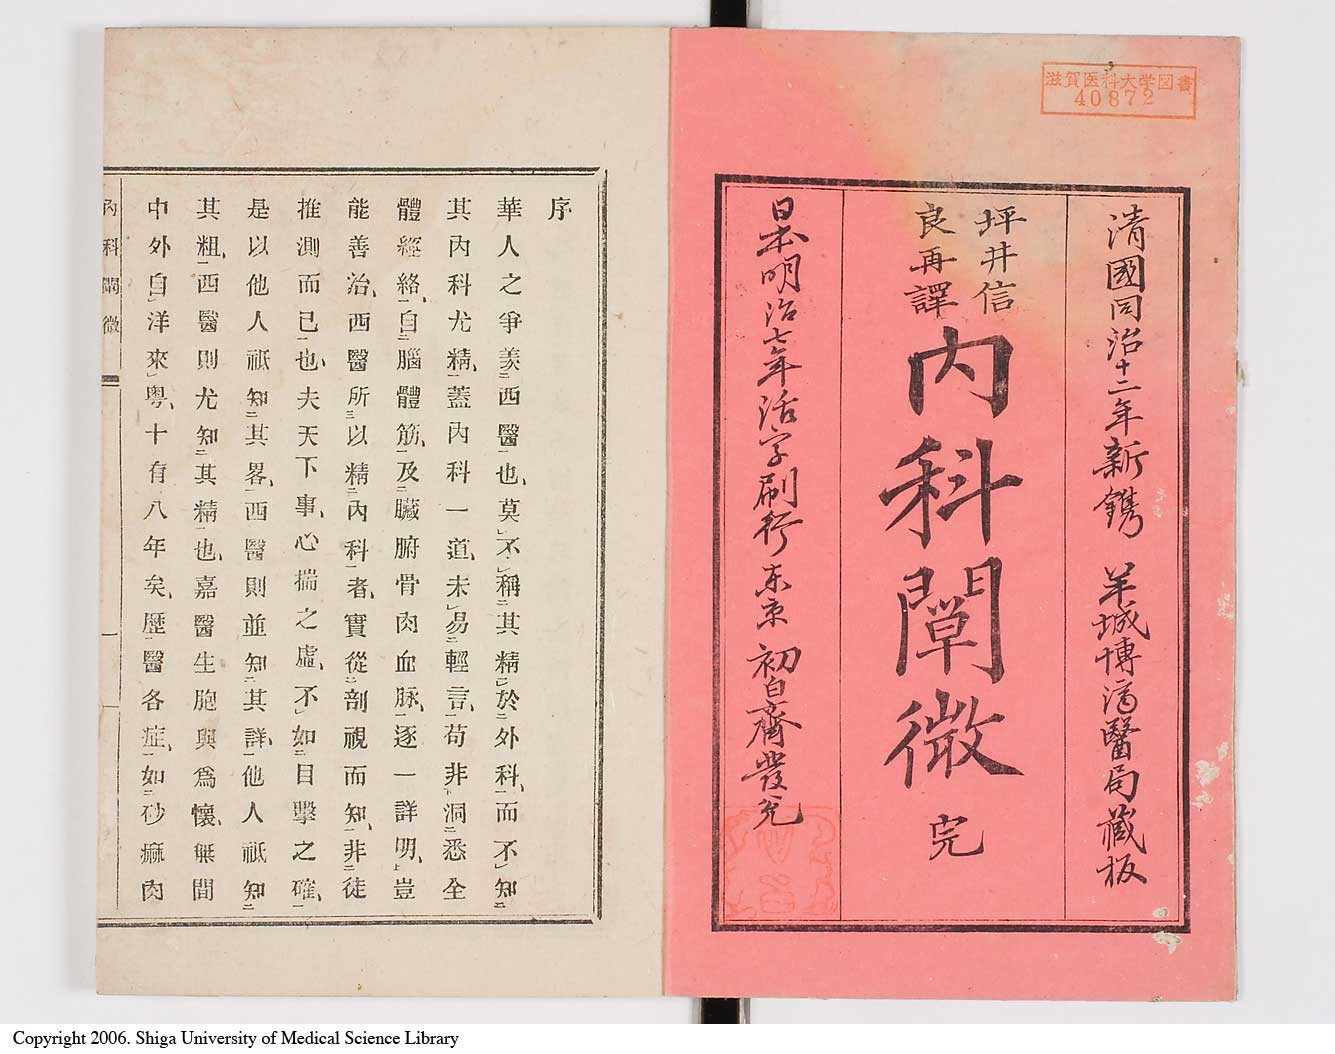 滋賀医科大学図書
40872
清國同治十二年新鐫 羊城博濟醫局藏板
坪井信
良再譯
内科闡微 完
日本明治七年活字刷行 東京 初白齋發兌
序
華人之爭羨西醫也、莫不稱其精於外科、而不知
其内科尤精、蓋内科一道、未易輕言、苟非洞悉全
體經絡、自腦體筋、及臟腑骨肉血脉、逐一詳明、豈
能善治、西醫所以精内科者、實從剖視而知、非徒
推測而已也、夫天下事、心揣之虛、不如目擊之確、
是以他人祇知其畧、西醫則並知其詳、他人祇知
其粗、西醫則尤知其精也、嘉醫生胞與爲懷、無間
中外、自洋來粤、十有八年矣、歷醫各症、如砂痳肉
内科闡微
一
Copyright 2006. Shiga University of Medical Science Library